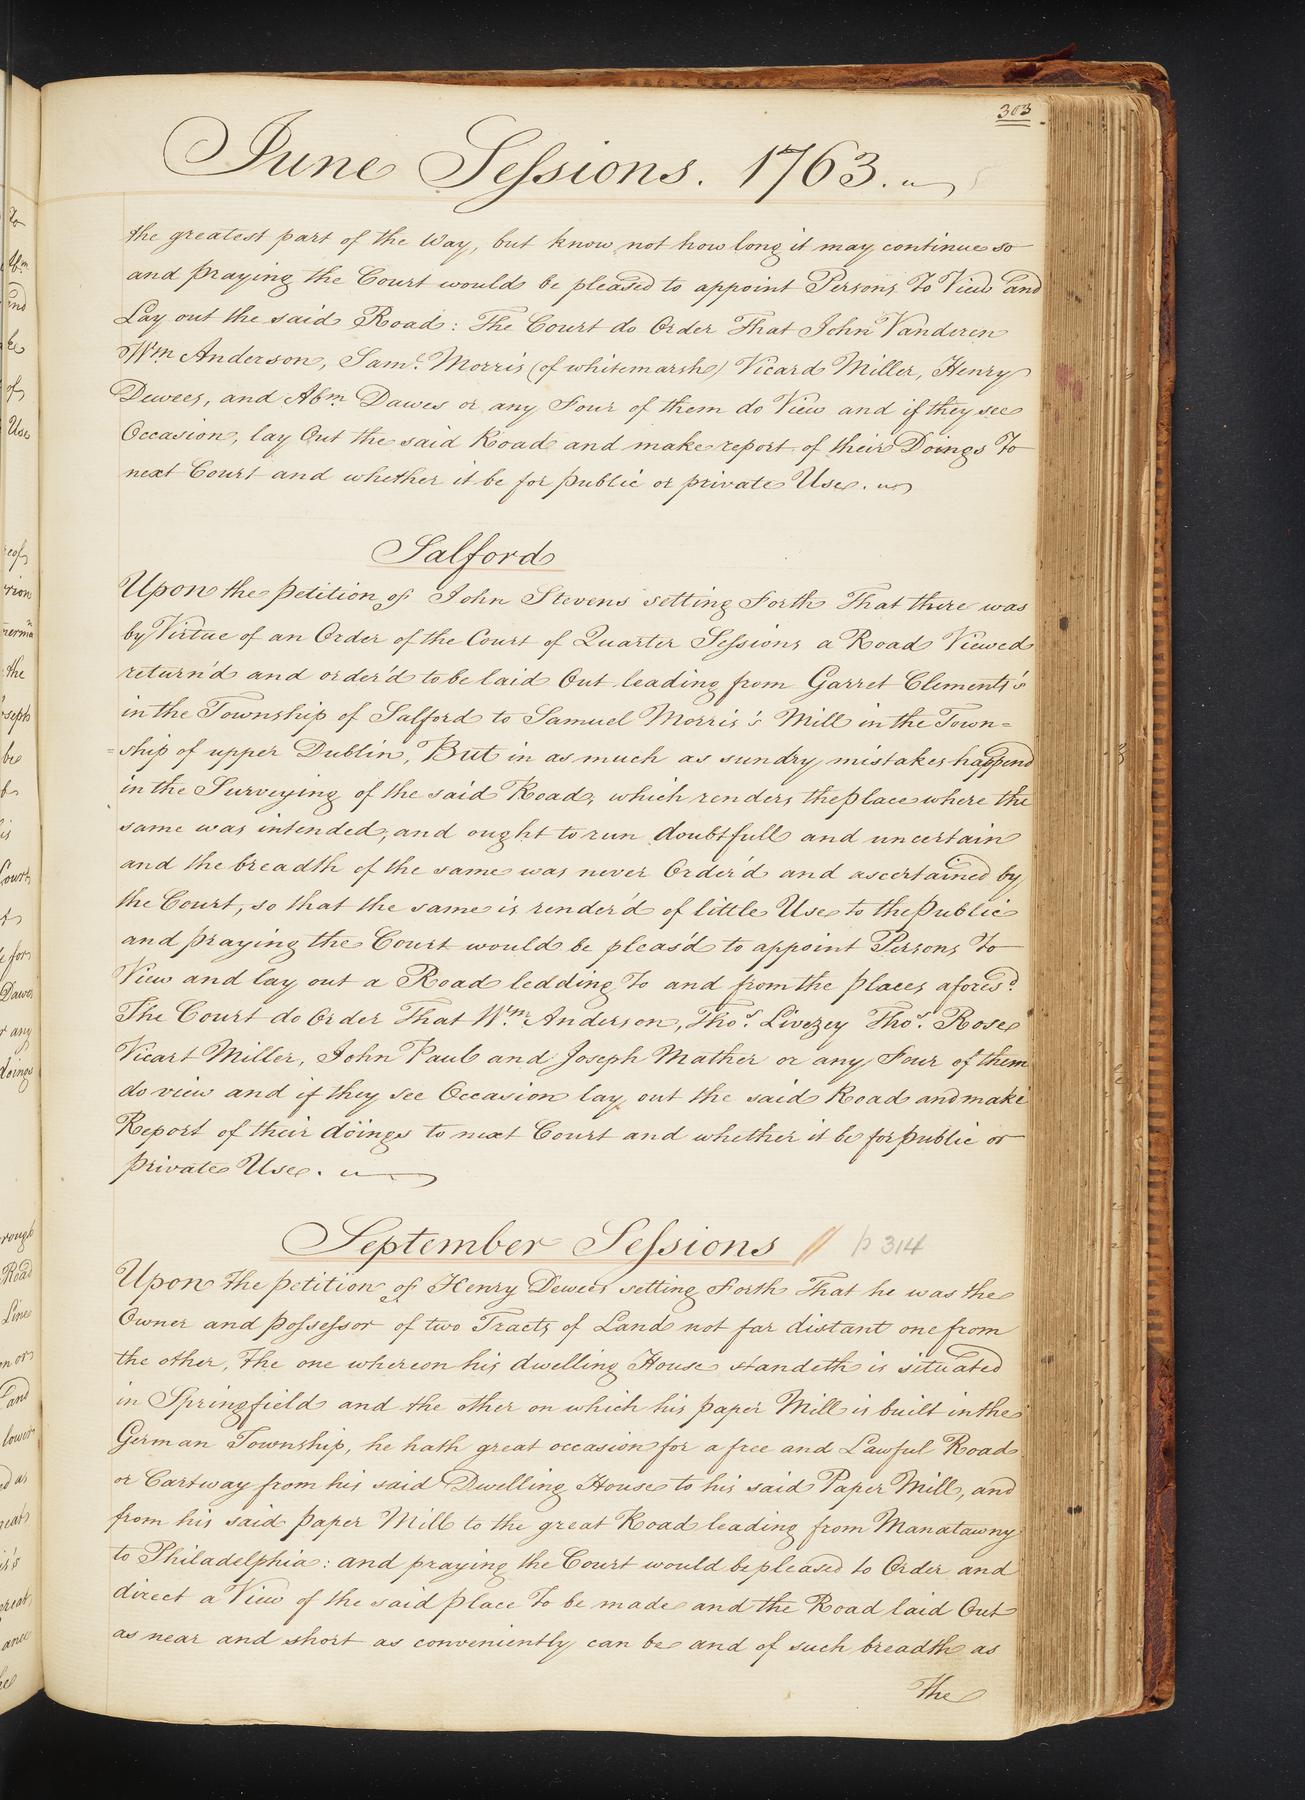 303
June Sessions. 1763.
the greatest part of the Way, but know not how long it may continue so
and praying the Court would be pleased to appoint Persons To View and
Lay out the said Road: The Court do Order That John Vanderen
Wm Anderson, Saml. Morris (of whitemarsh) Vicard Miller, Henry
Dewees, and Abm. Dawes or any Four of them do View and if they see
Occasion, lay Out the said Road and make report of their Doings To
next Court and whether it be for public or private Use.
Salford
Upon the petition of John Stevens setting Forth That there was
by Virtue of an Order of the Court of Quarter Sessions a Road Viewed
return'd and order'd to be laid Out leading from Garret Clements's
in the Township of Salford to Samuel Morris's Mill in the Town=
=ship of upper Dublin, But in as much as sundry mistakes happend
in the Surveying of the said Road, which renders the place where the
same was intended, and ought to run doubtfull and uncertain
and the breadth of the same was never Order'd and ascertained by
the Court, so that the same is render'd of little Use to the Public
and praying the Court would be pleas'd to appoint Persons To
View and lay out a Road ledding To and from the places aforesd.
The Court do Order That Wm. Anderson, Thos. Livezey Thos. Rose
Vicart Miller, John Paul and Joseph Mather or any Four of them
do view and if they see Occasion lay out the said Road and make
Report of their doings to next Court and whether it be for public or
private Use.
September Sessions // p 314
Upon the petition of Henry Dewees setting Forth That he was the
Owner and possessor of two Tracts of Land not far distant one from
the other, The one whereon his dwelling House standeth is situated
in Springfield and the other on which his paper Mill is built in the
German Township, he hath great occasion for a free and Lawful Road
or Cartway from his said Dwelling House to his said Paper Mill, and
from his said paper Mill to the great Road leading from Manatawny
to Philadelphia: and praying the Court would be pleased to Order and
direct a View of the said place To be made and the Road laid Out
as near and short as conveniently can be and of such breadth as
The